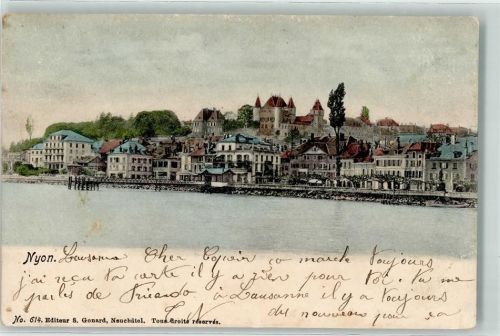 Nyon. Lausanne Cher ça marche toujours
j'ai reçu ta carte il y a rien pour toi. Tu me
parles de à Lausanne il y a toujours
du nouveau pour
No. 614. Editeur S. Gonard, Neuchâtel. Tous droits réservés.